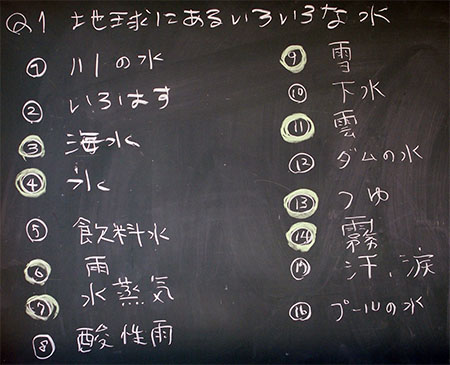 Q1 地球にあるいろいろな水
① 川の水
② いろはす
③ 海水
④ 氷
⑤ 飲料水
⑥ 雨
⑦ 水蒸気
⑧ 酸性雨
⑨ 雪
⑩ 下水
⑪ 雲
⑫ ダムの水
⑬ つゆ
⑭ 霧
⑮ 汗、涙
⑯ プールの水